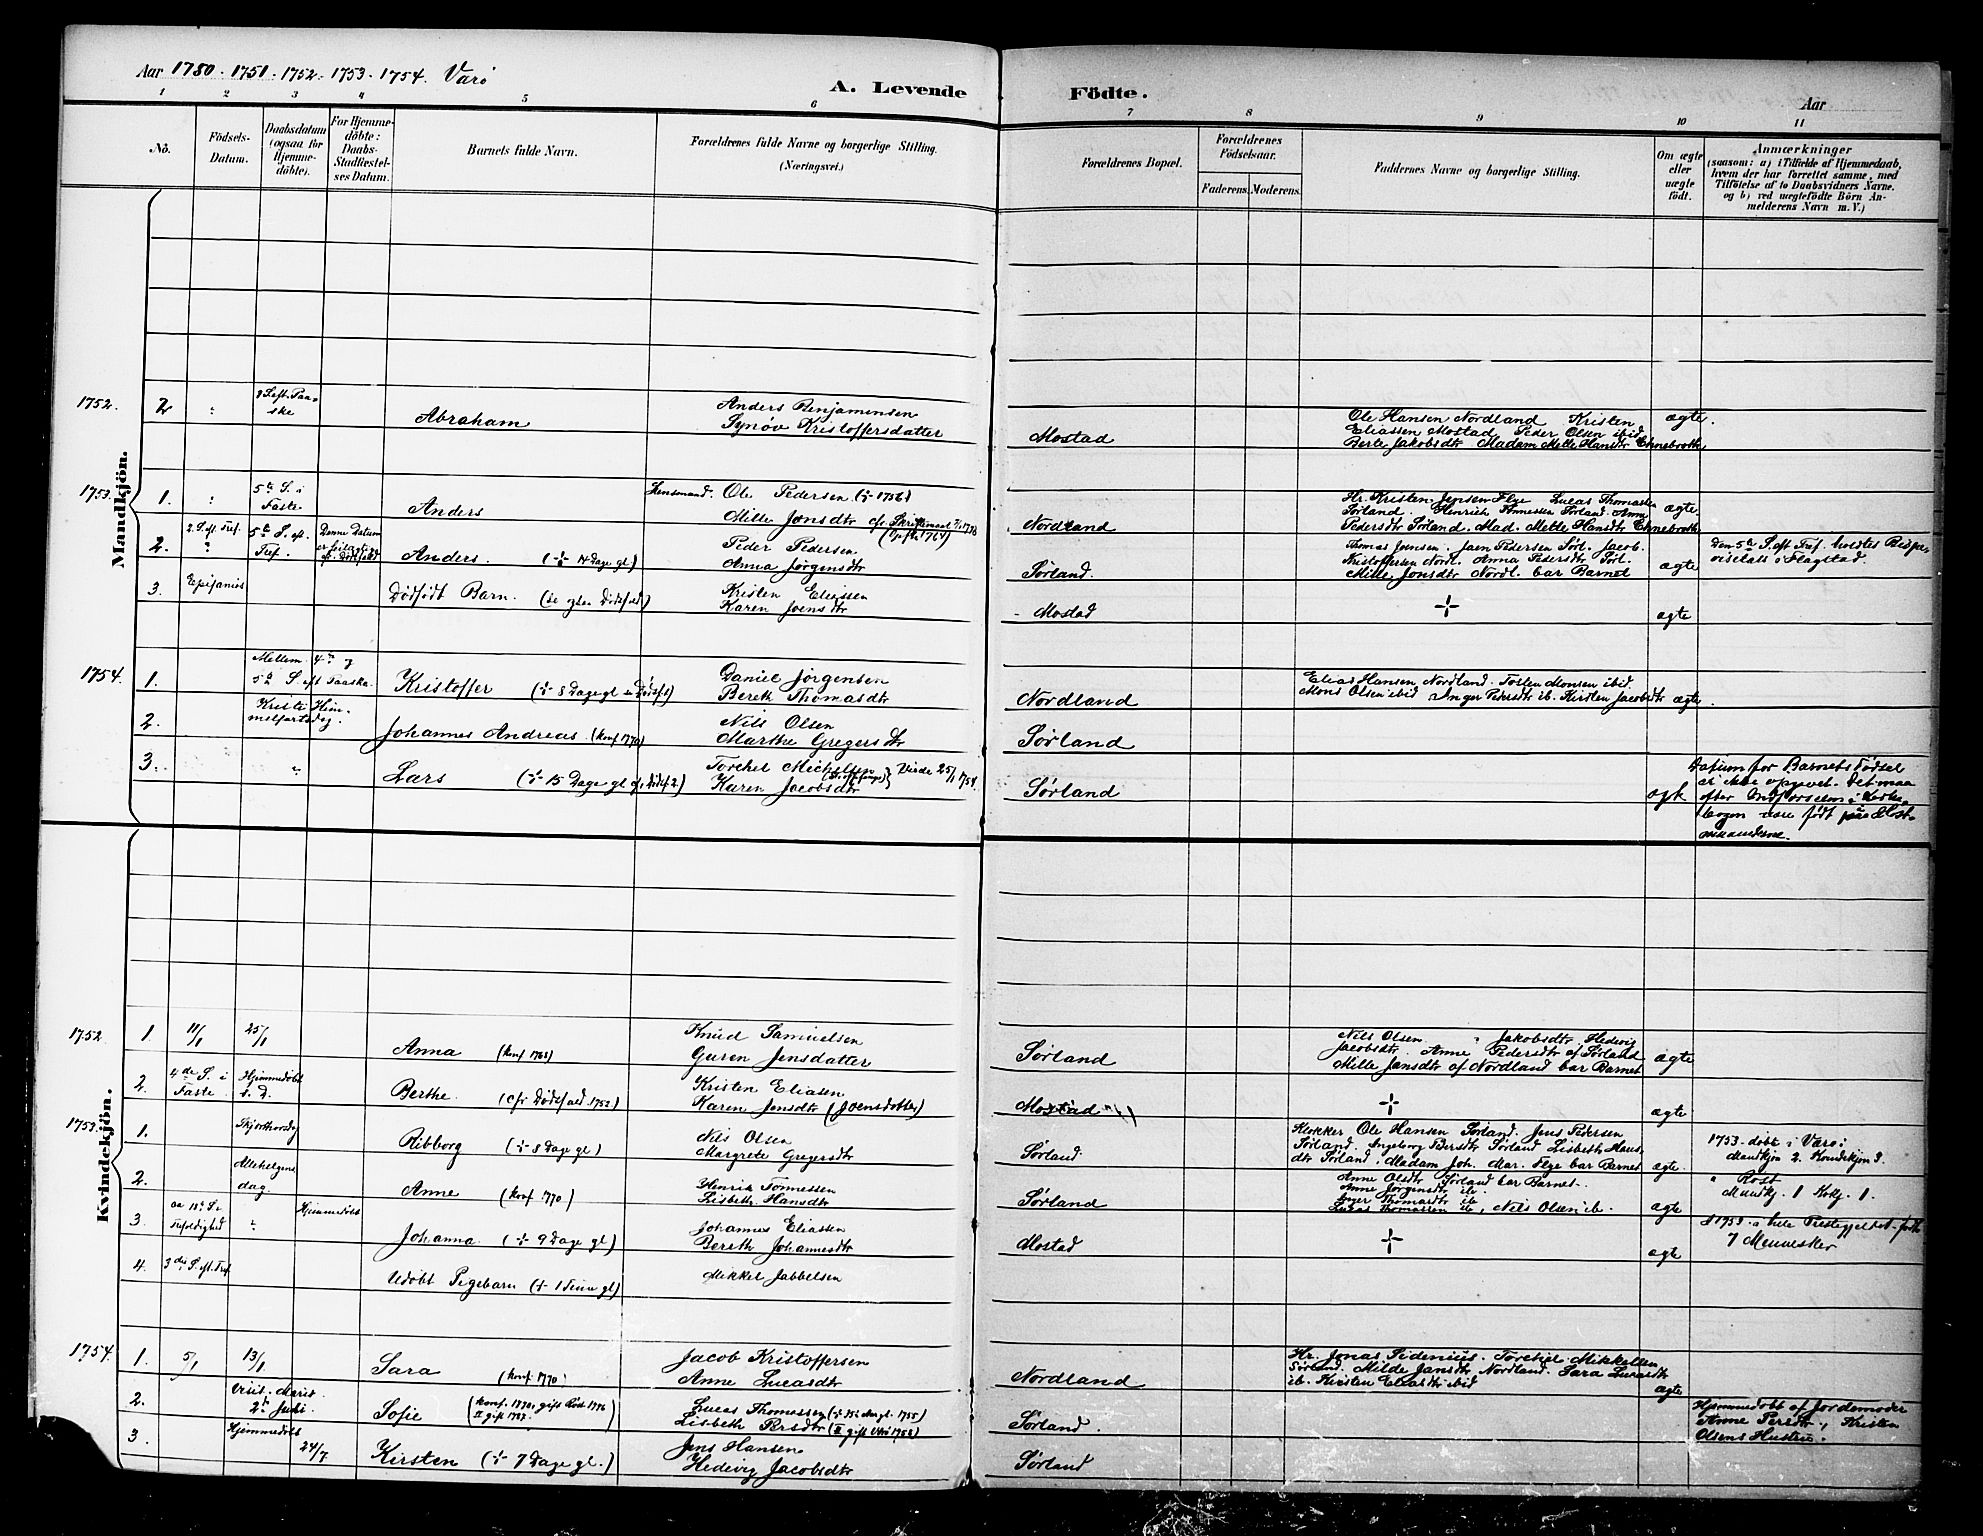 Aar 1750 - 1751 - 1752 - 1753 - 1754. Værö
A. Levende Födte.
Aar
1 2 3 4 5 6 7 8 9 10 11
No.
Födsels-Datum.
Daabsdatum (ogsaa for Hjemme-döbte).
For Hjemme-döbte: Daabs-Stadfæstel-ses Datum.
Barnets fulde Navn.
Forældrenes fulde Navne og borgerlige Stilling. (Næringsvei.)
Forældrenes Bopæl.
Forældrenes Födselsaar.
Faderens. Moderens.
Faddernes Navne og borgerlige Stilling.
Om ægte eller uægte födt.
Anmærkninger
(saasom: a) i Tilfælde af Hjemmedaab, hvem der har forrettet samme, med Tilföielse af to Daabsvidners Navne. og b) ved uægtefödte Börn An-melderens Navn m. V.)
Mandkjön.
1752. 2 " Abraham
Anders Benjamensen
Synöv Kristoffersdatter
Mostad
Ole Hansen Nordland Kristen
Eliassen Mostad Peder Olsen ibid
Berte Jakobsdtr Madam Mette Hansdtr Ehnebrotte
ægte.
1753. 1. " 5te S. i Faste Anders
Lensmand. Ole Pedersen (÷ 1756)
Mille Jonsdtr
Nordland
Hr. Kristen Jensen Flye Lucas Thomassen
Sørland. Henrich Tønnesen Sørland. Anne
Pedersdtr Sørland. Mad. Mette Hansdtr Ehnebrotte
ægte.
2. 2. S. eft Tref. 5te S. eft. Tref. Anders. (÷ 14 Dage gl)
Peder Pedersen
Anna Jørgensdtr
Sørland.
Thomas Joensen. Joen Pedersen Sørl. Jacob
Kristoffersen Nordl. Anna Pedersdtr Sørl.
Mille Jonsdtr Nordl. bar Barnet
ægte
Den 5te S. eft Tref. holdtes Bispe-
visitats i Flagstad.
3. Epifanias Dødfødt Barn.
Kristen Eliassen
Karen Joensdtr
Mostad
÷
ægte
1754. 1. Mellem 4de og
5te S eft Paaske. Kristoffer (÷ 8 Dage gl
Daniel Jørgensen
Bereth Thomasdtr
Nordland
Elias Hansen Nordland. Tosten Monsen ibid.
Mons Olsen ibid. Inger Pedersdtr ib. Kirsten Jacobsdtr
ægte.
2. Kristi Him-
melfartsdag. Johannes Andreas. (konf 1770)
Nils Olsen
Marthe Gregersdtr
Sørland
3. " Lars (÷ 15 Dage gl
Torchel Michelsen
Karen Jacobsdtr } Viede 25/1 1754.
Sørland
ægte
Datum for Barnets Fødsel
er ikke opgivet. Det maa
efter Indførselen i Kirke-
bogen være født paa Høst-
maanederne.
Kvindekjön.
1752 1. 11/1 25/1 Anna (konf 1768)
Knud Samuelsen
Guren Jensdatter
Sørland
Nils Olsen. " Jakobsdtr. Hedevig
Jacobsdtr. Anne Pedersdtr af Sørland
Mille Jonsdtr af Nordland bar Barnet
ægte
2. 4de S. i Faste Hjemmedøbt
s. D. Berthe. (cfr Dødsfald 1752)
Kristen Eliasen
Karen Jonsdtr (Joensdotter)
Mostad
÷
ægte
1753. 1. Skjærthorsdag Ribborg (÷ 8 Dage gl)
Nils Olsen
Margrete Gregersdtr
Sørland.
Klokker Ole Hansen Sørland. Jens Pedersen
Sørland. Ingeborg Persdtr Sørland Lisbeth Hans-
dtr Sørland. Madam Joh. Mar. Flye bar Barnet
ægte.
1753. døbt i Værø:
Mandkjøn 2. Kvindekjøn 3.
" Røst
Mandkj. 1 Kvkj. 1.
2. Allehelgens
dag. Anne (konf 1770)
Henrik Tönnessen
Lisbeth Hansdtr
Sørland
Anne Olsdtr Sørland bar Barnet.
Anne Jørgensdtr ib.
Inger Thomasdtr ib
Lucas Thomassen ib, Nils Olsen ib.
ægte
3. Trefoldighed " Hjemmedøbt Johanna. (÷ 9 Dage gl)
Johannes Eliassen
Bereth Johannesdtr
Mostad
÷
ægte
1753 i hele Præstegjeldet
7 Mennesker
4. 3die S. eft. Tref. Udøbt Pigebarn (÷ 1 Time gl)
Mikkel Jabbelsen
1754. 1. 5/1 13/1 Sara (konf 1770)
Jacob Kristoffersen
Anne Lucasdtr
Nordland
Hr. Jonas Sidenius. Torchel Mikkelsen
Sørland. Milde Jonsdtr Nordland. Sara Lucasdtr
ib. Kirsten Eliasdtr ibid
ægte
2. Visit. Mariæ
2de Juli. Sofie (konf. 1770, gift Røst 1776
II gift 1787.)
Lucas Thomassen
Lisbeth Persdtr
Sørland.
Hjemmedøbt af Jordemoder
Anne Persdtr, Kristen
Olsens Hustru.
3. Hjemmedøbt 24/7 Kirsten (÷ 7 Dage gl.)
Jens Hansen
Hedevig Jacobsdtr
Sørland